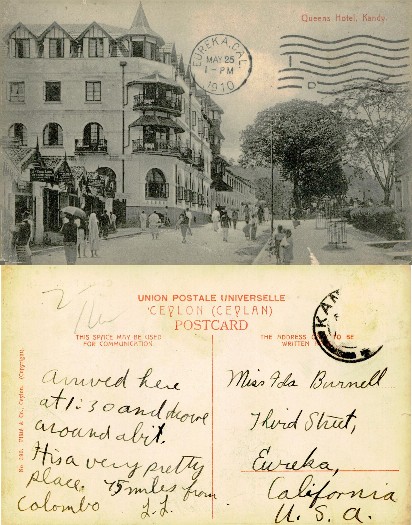 Queens Hotel, Kandy.
EUREKA, CAL.
MAY 25
1-PM
1910
UNION POSTALE UNIVERSELLE
CEYLON (CEYLAN)
POSTCARD
THIS SPACE MAY BE USED
FOR COMMUNICATION.
THE ADDRESS TO BE
WRITTEN
KAN
arrived here
at 1:30 and drove
around a bit.
It is a very pretty
place. 75 miles from
Colombo L.L.
Miss Ida Burnell
Third Street,
Eureka,
California
U.S.A.